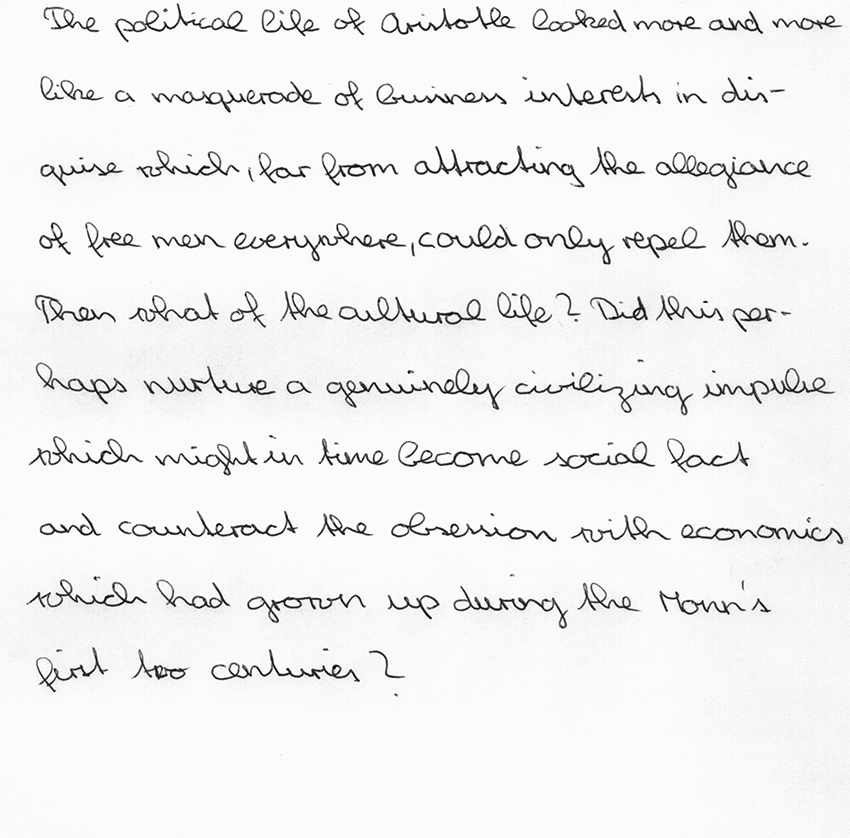 The political life of Aristotle looked more and more
like a masquerade of business interests in dis-
guise which, far from attracting the allegiance
of free men everywhere, could only repel them.
Then what of the cultural life? Did this per-
haps nurture a genuinely civilizing impulse
which might in time become social fact
and counteract the obsession with economics
which had grown up during the Monn's
first two centuries?